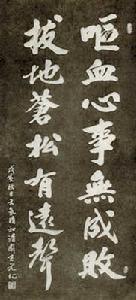 呕血心事無成敗
拔地蒼松有遠聲